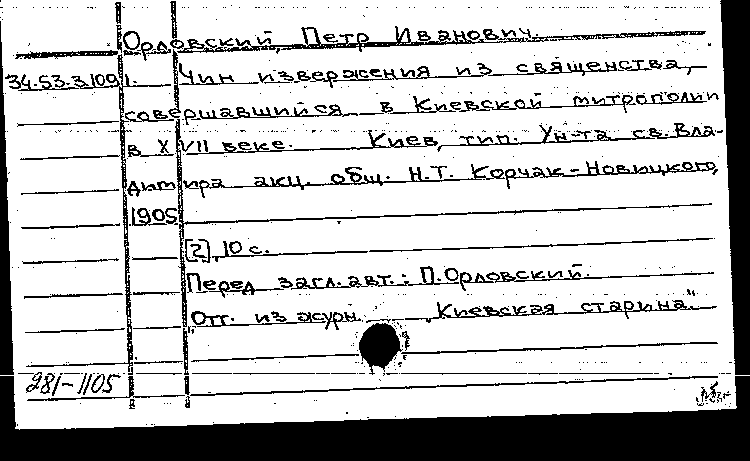 Орловский, Петр Иванович.
34.53.3.109 1. Чин извержения из священства,
совершавшийся в Киевской митрополии
в XVII веке. Киев, тип. Ун-та св. Вла-
димира акц. общ. Н.Т. Корчак-Новицкого,
1905
[2], 10 с.
Перед загл. авт.: П. Орловский.
Отт. из журн. „Киевская старина".
281-1105